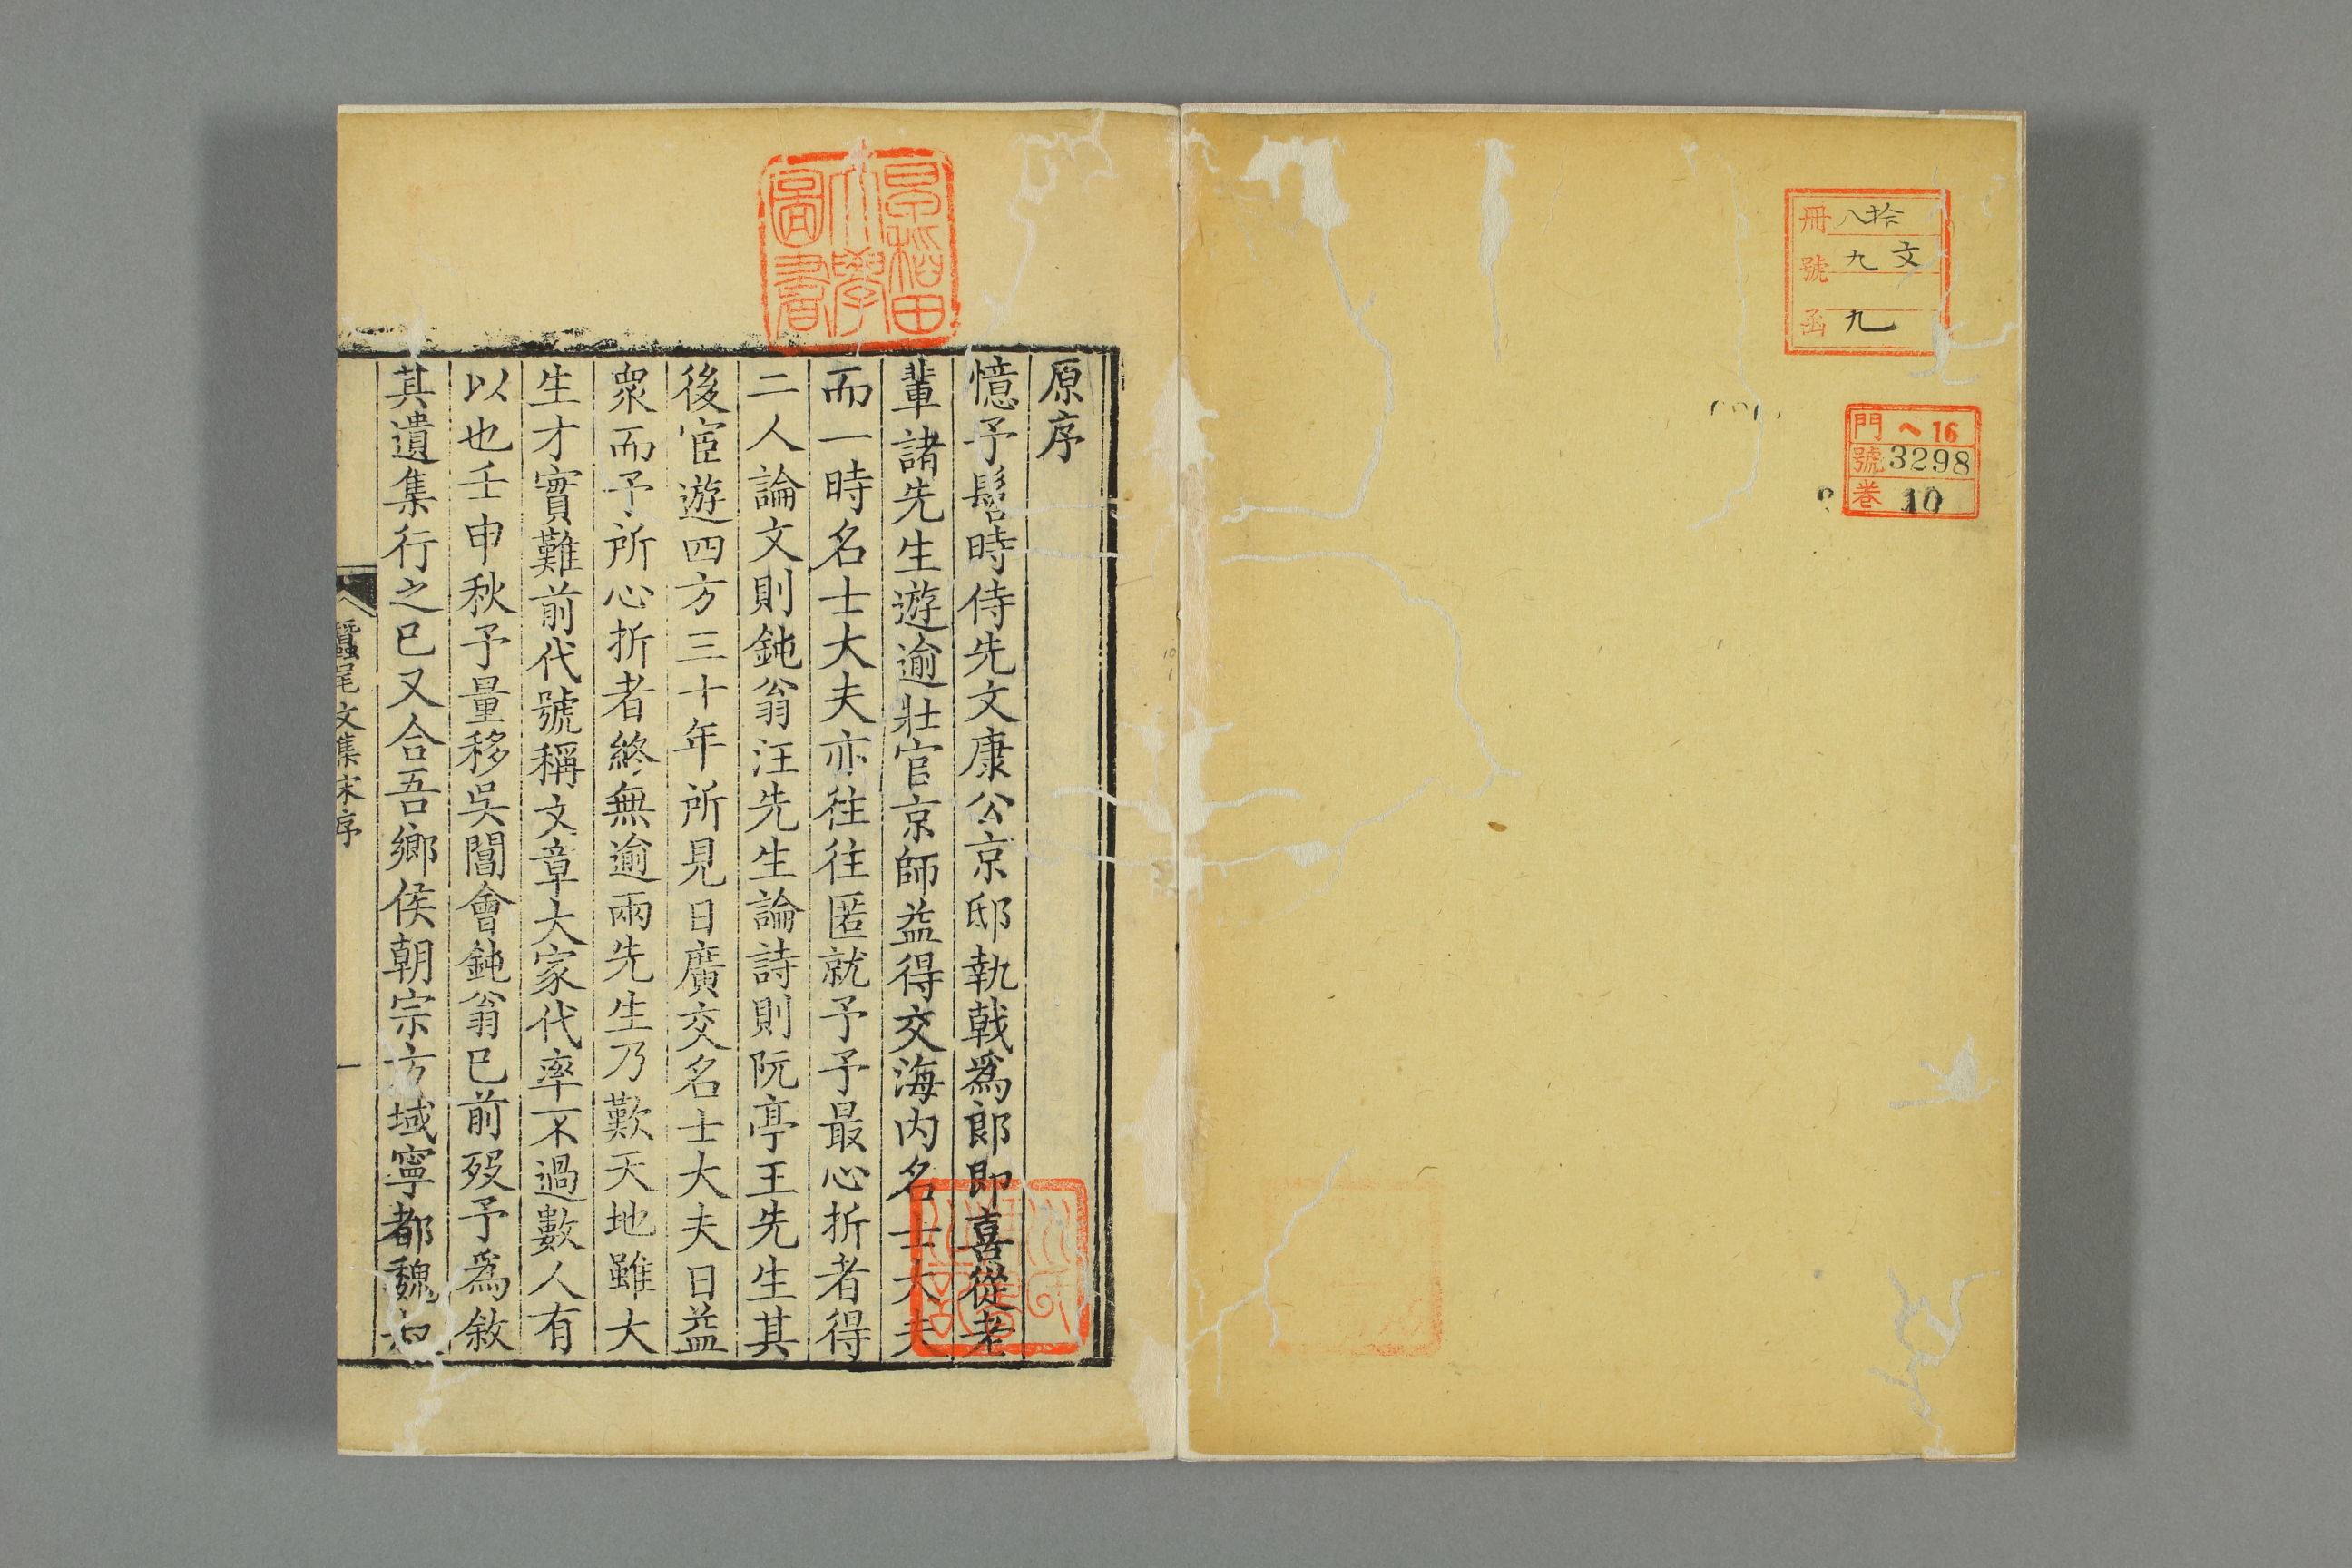 冊 八拾
號 九 文
函 九
門 ヘ16
號 3298
巻 10
早稲田
大學
圖書
原序
憶予髫時侍先文康公京邸執戟爲郎即喜從老
輩諸先生遊逾壯官京師益得交海内名士大夫
而一時名士大夫亦往往匿就予予最心折者得
二人論文則鈍翁汪先生論詩則阮亭王先生其
後宦遊四方三十年所見日廣交名士大夫日益
衆而予所心折者終無逾兩先生乃歎天地雖大
生才實難前代號稱文章大家代率不過數人有
以也壬申秋予量移吳閶會鈍翁已前歿予爲敘
其遺集行之已又合吾鄉侯朝宗方域寧都魏
蠶尾文集宋序
一